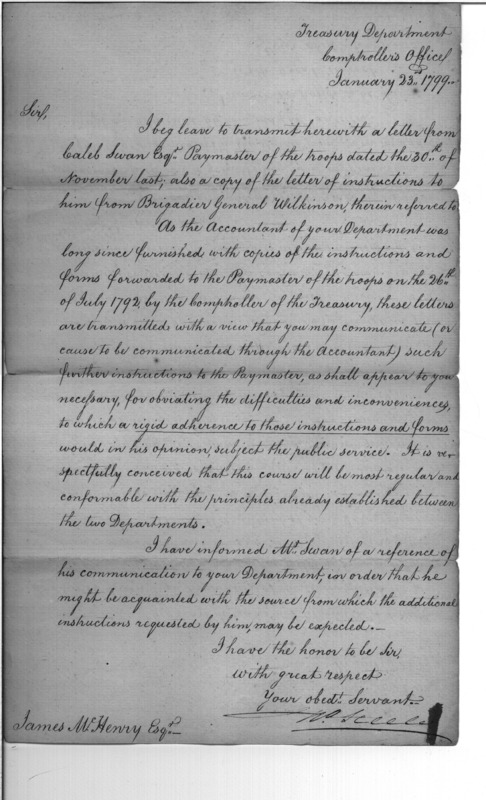 Treasury Department
Comptroller's Office
January 23d. 1799.
Sir,
I beg leave to transmit herewith a letter from
Caleb Swan Esqr. Paymaster of the troops dated the 30th. of
November last; also a copy of the letter of instructions to
him from Brigadier General Wilkinson, therein referred to.
As the Accountant of your Department was
long since furnished with copies of the instructions and
forms forwarded to the Paymaster of the troops on the 26th.
of July 1792, by the Comptroller of the Treasury, these letters
are transmitted with a view that you may communicate (or
cause to be communicated through the Accountant) such
further instructions to the Paymaster, as shall appear to you
necessary, for obviating the difficulties and inconveniences,
to which a rigid adherence to those instructions and forms
would in his opinion, subject the public service. It is re-
spectfully conceived that this course will be most regular and
conformable with the principles already established between
the two Departments.
I have informed Mr. Swan of a reference of
his communication to your Department, in order that he
might be acquainted with the source from which the additional
instructions requested by him, may be expected.—
I have the honor to be Sir,
with great respect
Your obedt. Servant
James McHenry Esqr.